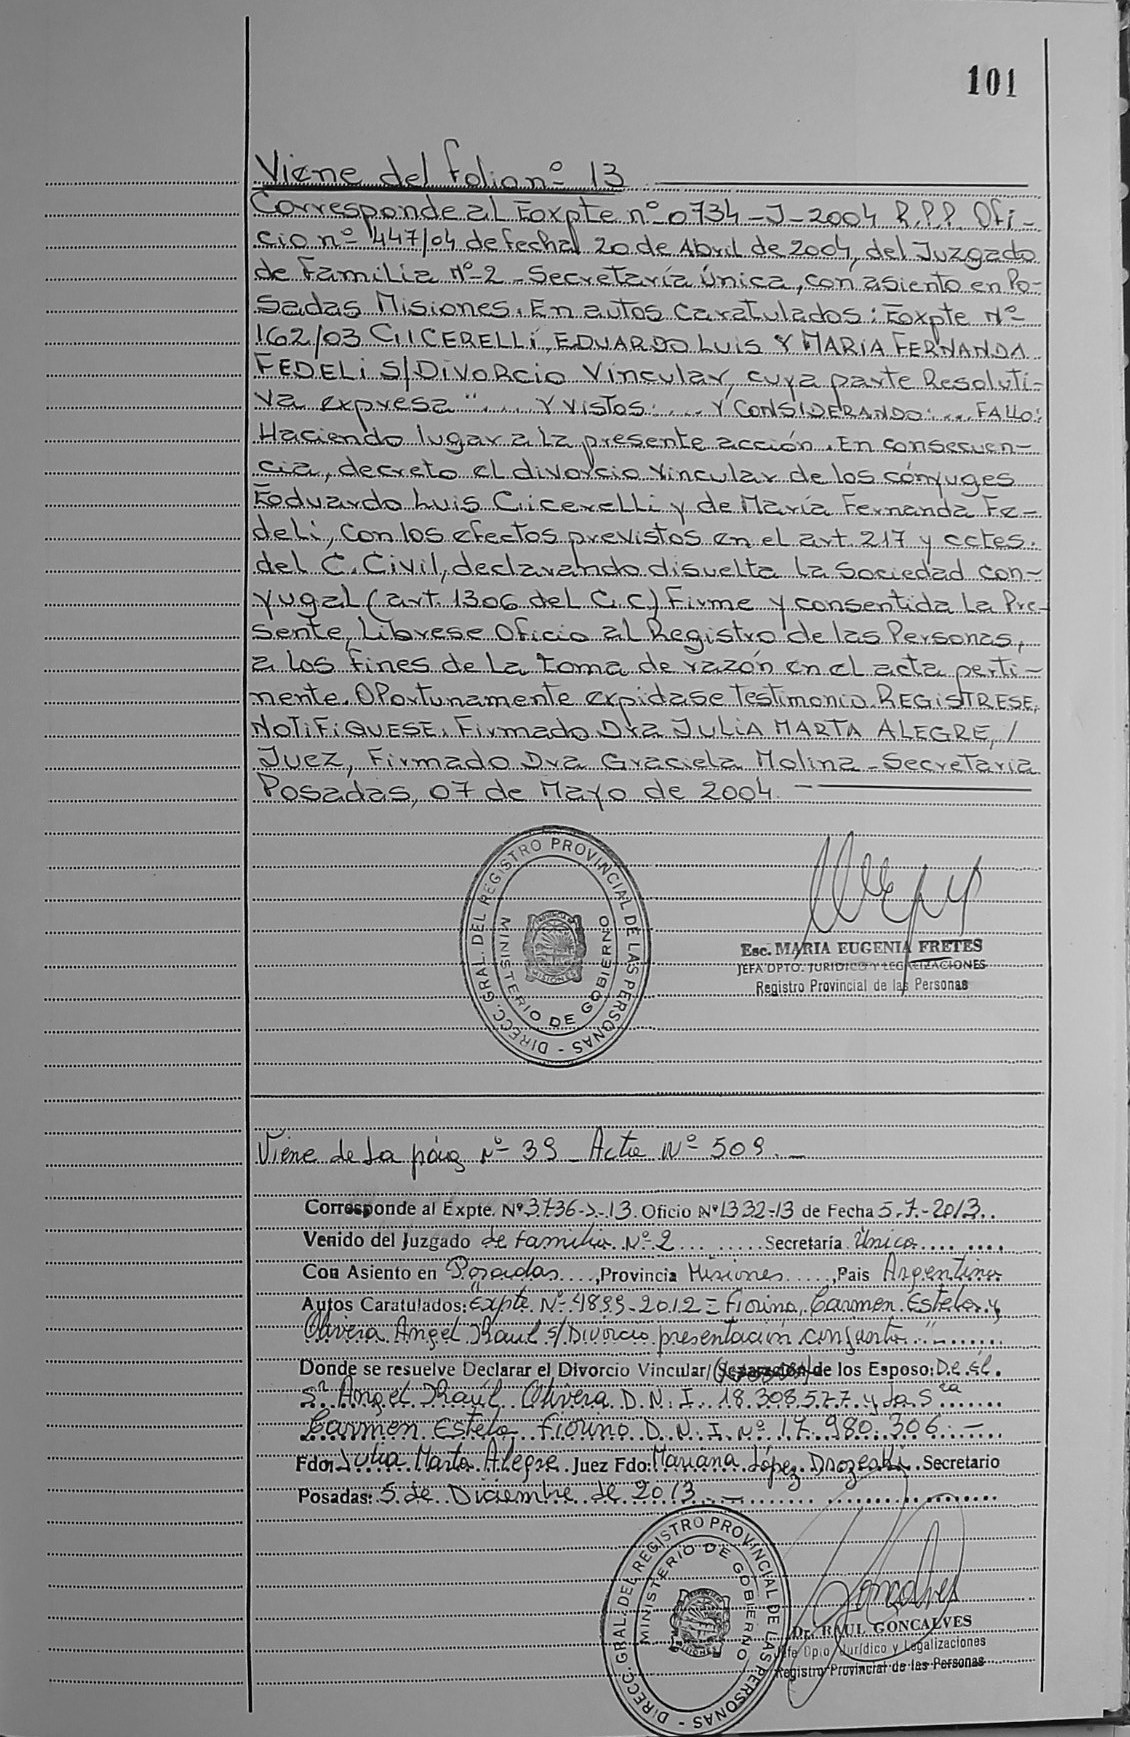 101
Viene del folio nº 13
Corresponde al Expte nº 0734-J-2004 R.P.P. Ofi-
cio nº 447/04 de fecha 20 de Abril de 2004, del Juzgado
de Familia Nº 2 - Secretaría Única, con asiento en Po-
sadas Misiones. En autos Caratulados: Expte Nº
162/03 CICERELLI, EDUARDO LUIS Y MARIA FERNANDA
FEDELI S/DIVORCIO Vincular, cuya parte Resoluti-
va expresa "... Y VISTOS: ... Y CONSIDERANDO: ... FALLO:
Haciendo lugar a la presente acción. En consecuen-
cia, decreto el divorcio vincular de los cónyuges
Eduardo Luis Cicerelli y de María Fernanda Fe-
deli, con los efectos previstos en el art. 217 y cctes.
del C. Civil, declarando disuelta la Sociedad con-
yugal (art. 1306 del C.C) Firme y consentida la Pre-
sente, Líbrese Oficio al Registro de las Personas,
a los fines de la toma de razón en el acta perti-
nente. Oportunamente expidase testimonio. REGISTRESE,
NOTIFIQUESE. Firmado Dra JULIA MARTA ALEGRE, /
Juez, Firmado Dra Graciela Molina - Secretaria
Posadas, 07 de Mayo de 2004.
DIRECC. GRAL. DEL REGISTRO PROVINCIAL DE LAS PERSONAS -
MINISTERIO DE GOBIERNO
MISIONES
Esc. MARIA EUGENIA FRETES
JEFA DPTO. JURIDICO Y LEGALIZACIONES
Registro Provincial de las Personas
Viene de la pág Nº 39 - Acta Nº 509. -
Corresponde al Expte. Nº 3736-J-13. Oficio Nº 1332-13 de Fecha 5.7.-2013.
Venido del Juzgado de familia Nº 2 Secretaría Única
Con Asiento en Posadas, Provincia Misiones, Pais Argentina
Autos Caratulados: Expte. Nº 4899-2012 = Fiorino, Carmen Estela y
Olivera Angel Raul s/Divorcio presentación conjunta "
Donde se resuelve Declarar el Divorcio Vincular/(Separación) de los Esposo: De él.
Sr Angel Raúl Olivera D.N.I. 18.308.577 y la Sra
Carmen Estela Fiorino D.N.I. nº 17.980.306. -
Fdo: Julia Marta Alegre. Juez Fdo: Mariana López Drozeski. Secretario
Posadas: 5 de Diciembre de 2013. -
DIRECC. GRAL. DEL REGISTRO PROVINCIAL DE LAS PERSONAS -
MINISTERIO DE GOBIERNO
MISIONES
Goncalves
Dr. RAUL GONCALVES
Jefe Dpto. Jurídico y Legalizaciones
Registro Provincial de las Personas